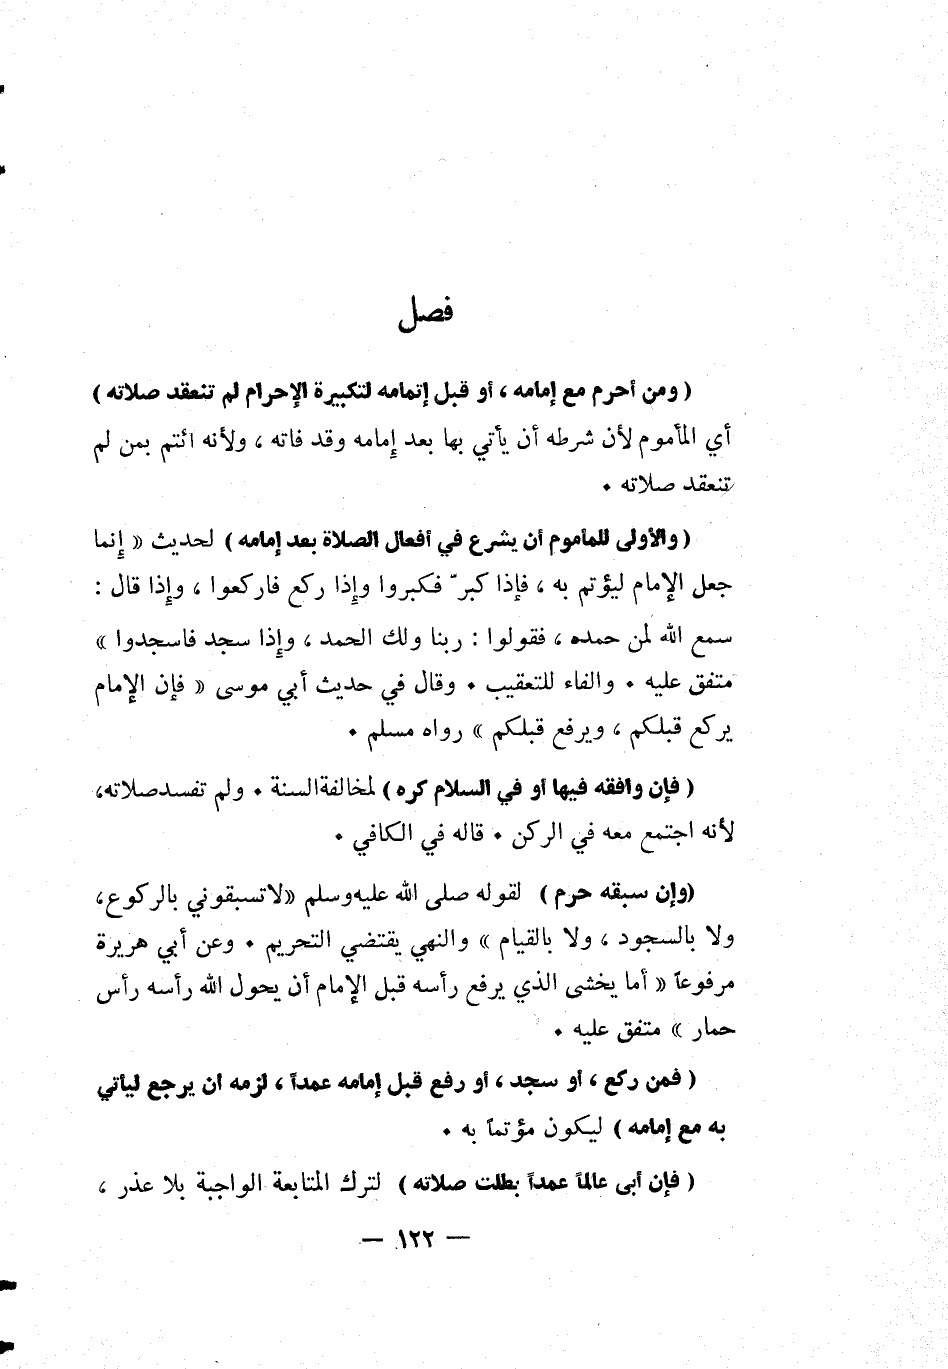 فصل
( ومن أحرم مع إمامه ، أو قبل إتمامه لتكبيرة الإحرام لم تنعقد صلاته )
أي المأموم لأن شرطه أن يأتي بها بعد إمامه وقد فاته ، ولأنه ائتم بمن لم
تنعقد صلاته ٠
( والأولى للمأموم أن يشرع في أفعال الصلاة بعد إمامه ) لحديث « إنما
جعل الإمام ليؤتم به ، فإذا كبرّ فكبروا وإذا ركع فاركعوا ، وإذا قال :
سمع الله لمن حمده ، فقولوا : ربنا ولك الحمد ، وإذا سجد فاسجدوا »
متفق عليه ٠ والفاء للتعقيب ٠ وقال في حديث أبي موسى « فإن الإمام
يركع قبلكم ، ويرفع قبلكم » رواه مسلم ٠
( فإن وافقه فيها أو في السلام كره ) لمخالفة السنة ٠ ولم تفسد صلاته،
لأنه اجتمع معه في الركن ٠ قاله في الكافي ٠
(وإن سبقه حرم ) لقوله صلى الله عليه وسلم «لا تسبقوني بالركوع،
ولا بالسجود ، ولا بالقيام » والنهي يقتضي التحريم ٠ وعن أبي هريرة
مرفوعاً « أما يخشى الذي يرفع رأسه قبل الإمام أن يحول الله رأسه رأس
حمار » متفق عليه ٠
( فمن ركع ، أو سجد ، أو رفع قبل إمامه عمداً ، لزمه ان يرجع ليأتي
به مع إمامه ) ليكون مؤتماً به ٠
( فإن أبى عالماً عمداً بطلت صلاته ) لترك المتابعة الواجبة بلا عذر ،
— ١٢٢ —